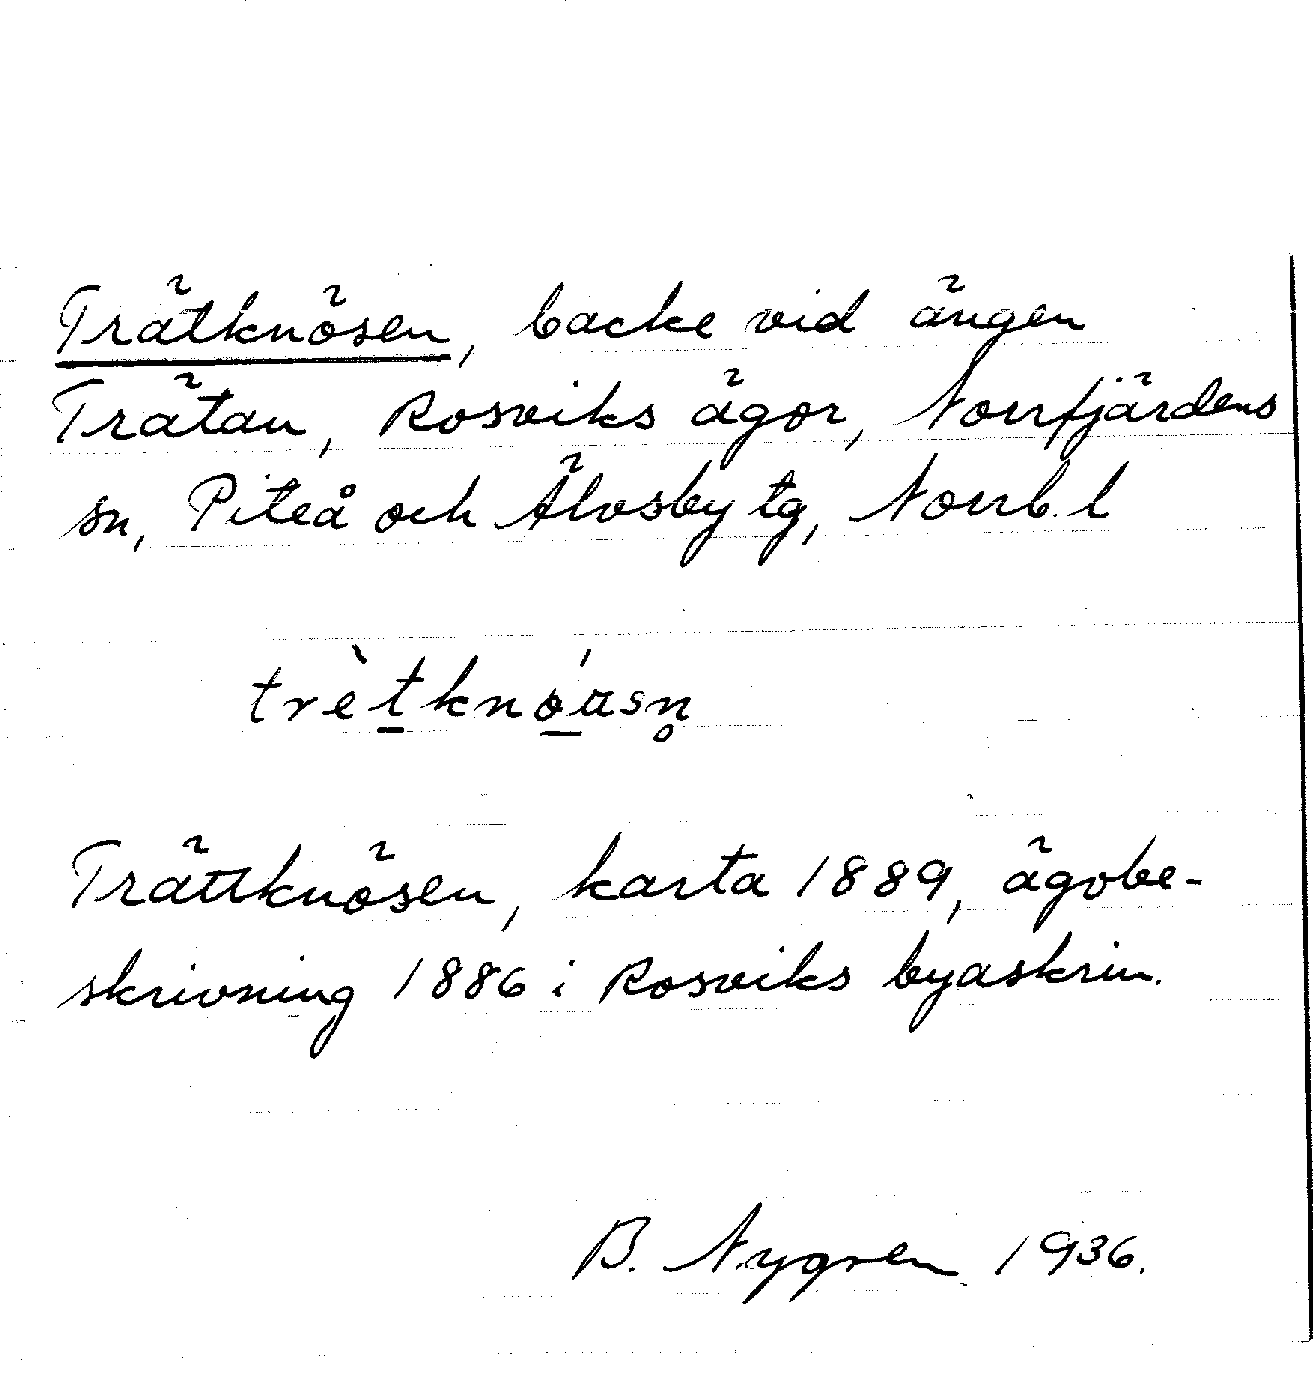 Trätknösen, backe vid ängen
Trätan, Rosviks ägor, Norrfjärdens
sn, Piteå och Älvsby tg, Norrb. l
Trättknösen, karta 1889, ägobe-
skrivning 1886 i Rosviks byaskrin.
B. Nygren 1936.